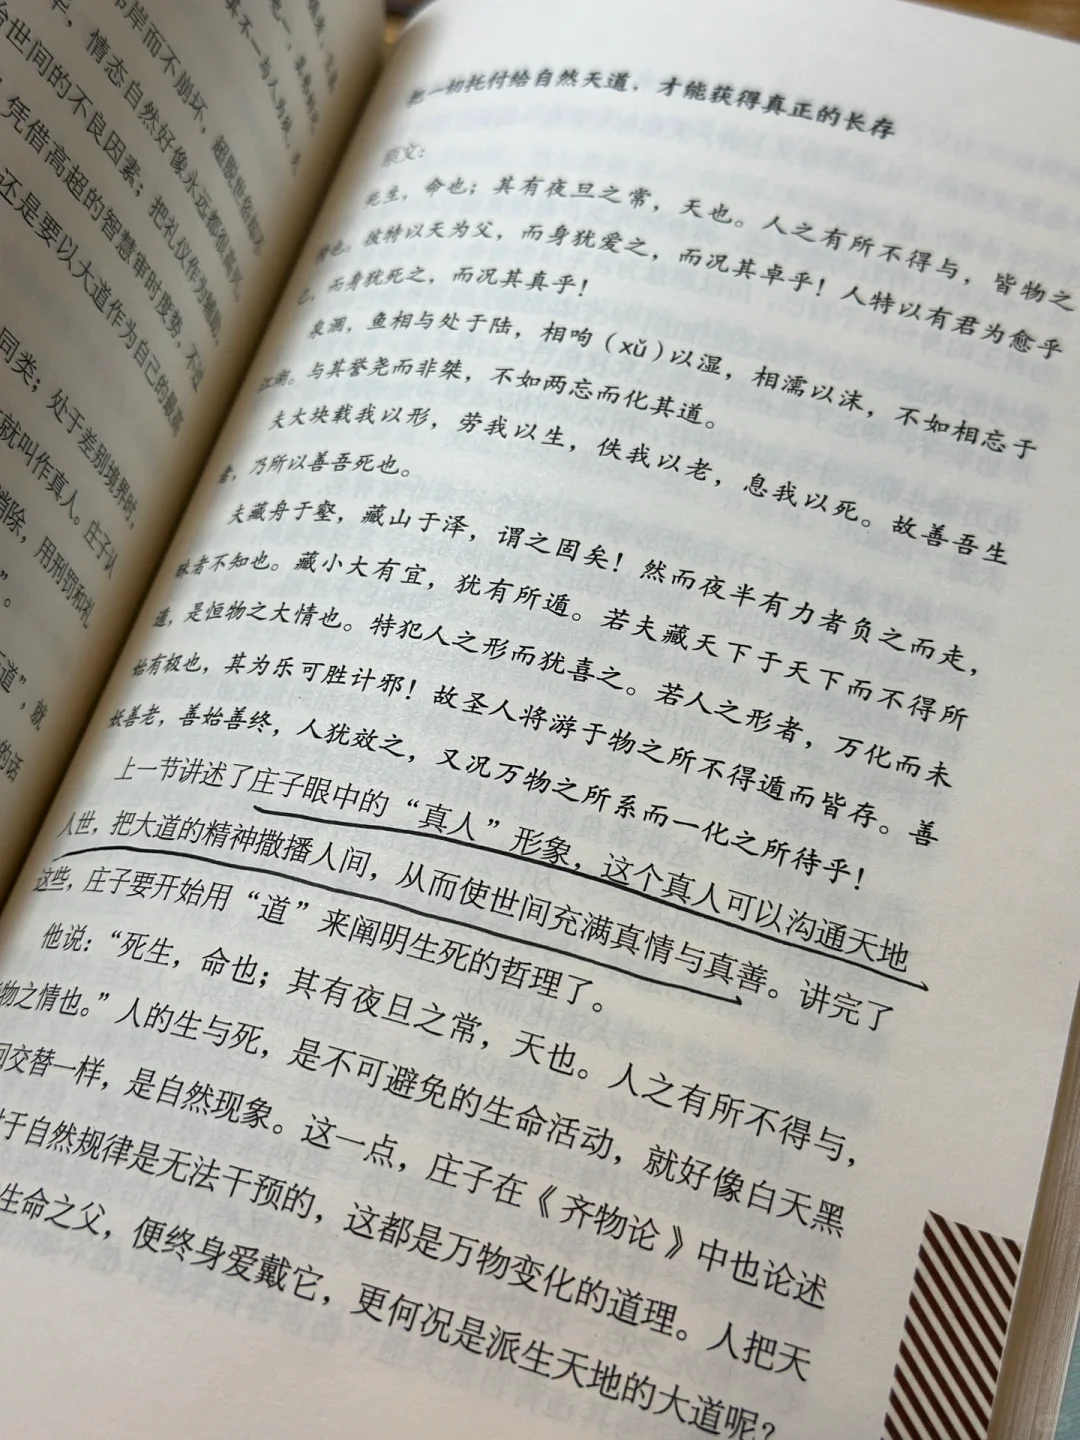 帛岸而不崩坏，
情态自然好像永远都很高兴。
世间的不良因素；把礼仪作为辅助，
凭借高超的智慧审时度势，不过
还是要以大道作为自己的最高
同类；处于差别境界时，
就叫作真人。庄子认
消除，用刑罚和礼
”。
道”，就
的话
把一切托付给自然天道，才能获得真正的长存
原文：
死生，命也；其有夜旦之常，天也。人之有所不得与，皆物之
情也。彼特以天为父，而身犹爱之，而况其卓乎！人特以有君为愈乎
己，而身犹死之，而况其真乎！
泉涸，鱼相与处于陆，相呴（xǔ）以湿，相濡以沫，不如相忘于
江湖。与其誉尧而非桀，不如两忘而化其道。
夫大块载我以形，劳我以生，佚我以老，息我以死。故善吾生
者，乃所以善吾死也。
夫藏舟于壑，藏山于泽，谓之固矣！然而夜半有力者负之而走，
昧者不知也。藏小大有宜，犹有所遁。若夫藏天下于天下而不得所
遁，是恒物之大情也。特犯人之形而犹喜之。若人之形者，万化而未
始有极也，其为乐可胜计邪！故圣人将游于物之所不得遁而皆存。善
妖善老，善始善终，人犹效之，又况万物之所系而一化之所待乎！
上一节讲述了庄子眼中的“真人”形象，这个真人可以沟通天地
人世，把大道的精神撒播人间，从而使世间充满真情与真善。讲完了
这些，庄子要开始用“道”来阐明生死的哲理了。
他说：“死生，命也；其有夜旦之常，天也。人之有所不得与，
物之情也。”人的生与死，是不可避免的生命活动，就好像白天黑
间交替一样，是自然现象。这一点，庄子在《齐物论》中也论述
对于自然规律是无法干预的，这都是万物变化的道理。人把天
生命之父，便终身爱戴它，更何况是派生天地的大道呢？